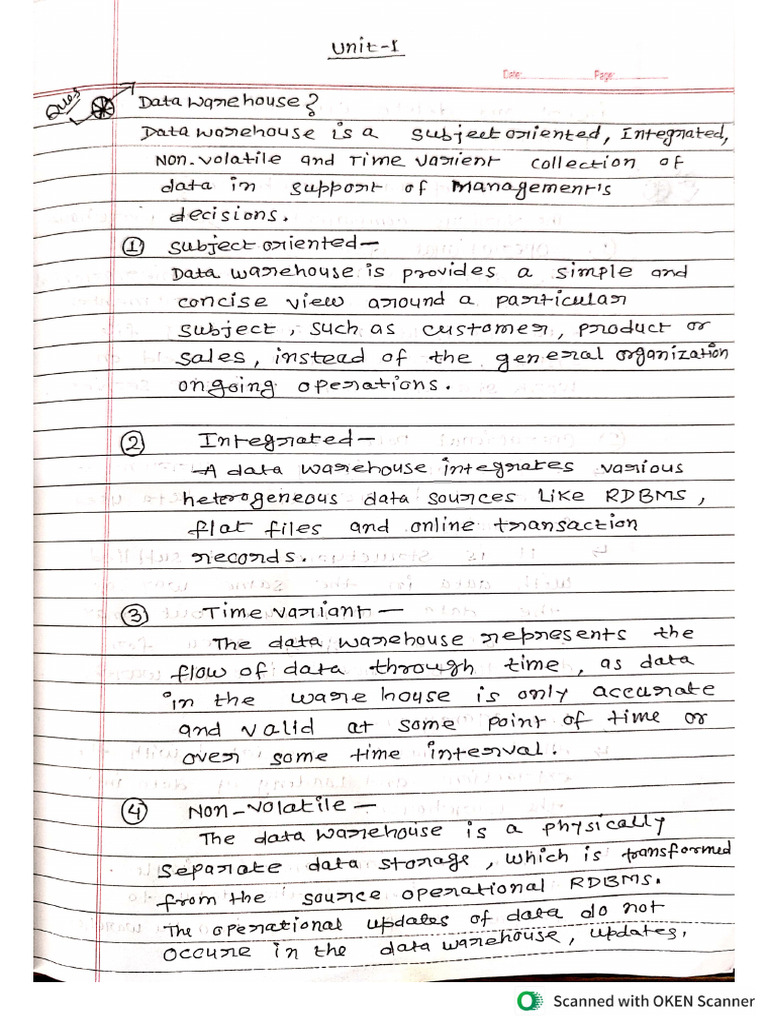 Unit-1
Date: Page:
Ques Data warehouse?
Data warehouse is a subject oriented, Integrated,
Non-volatile and Time varient collection of
data in support of Management's
decisions.
① subject oriented—
Data warehouse is provides a simple and
concise view around a particular
subject, such as customer, product or
sales, instead of the general organization
ongoing operations.
② Integrated—
A data warehouse integrates various
heterogeneous data sources like RDBMS,
flat files and online transaction
records.
③ Time variant—
The data warehouse represents the
flow of data through time, as data
in the ware house is only accurate
and valid at some point of time or
over some time interval.
④ Non-volatile—
The data warehouse is a physically
separate data storage, which is transformed
from the source operational RDBMS.
The operational updates of data do not
occure in the data warehouse, updates,
Scanned with OKEN Scanner